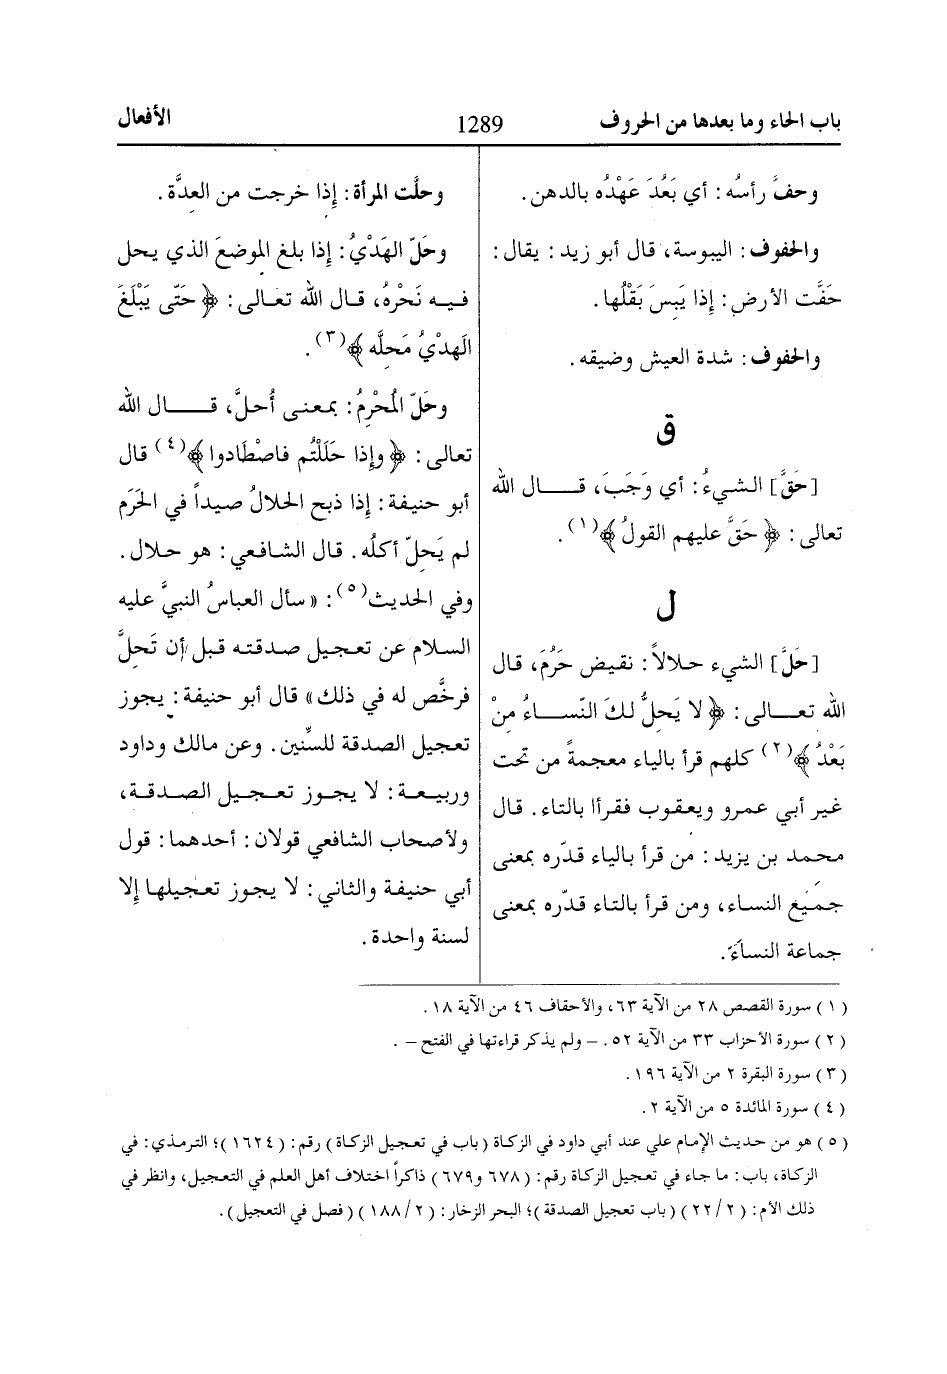 باب الحاء وما بعدها من الحروف
1289
الأفعال
وحفَّ رأسُه: أي بَعُدَ عَهْدُه بالدهن.
والحفوف: اليبوسة، قال أبو زيد: يقال:
حَفَّت الأرض: إذا يَبسَ بَقْلُها.
والحفوف: شدة العيش وضيقه.
ق
[حَقَّ] الشيءُ: أي وَجَبَ، قال الله
تعالى: ﴿حَقَّ عليهم القولُ﴾(١).
ل
[حَلَّ] الشيء حلالاً: نقيض حَرُمَ، قال
الله تعالى: ﴿لا يَحلُّ لكَ النّساءُ منْ
بَعْدُ﴾(٢) كلهم قرأ بالياء معجمةً من تحت
غير أبي عمرو ويعقوب فقرأا بالتاء. قال
محمد بن يزيد: من قرأ بالياء قدّره بمعنى
جميع النساء، ومن قرأ بالتاء قدّره بمعنى
جماعة النساء.
وحلَّت المرأة: إذا خرجت من العدَّة.
وحَلّ الهَدْيُ: إذا بلغ الموضعَ الذي يحل
فيه نَحْرُه، قال الله تعالى: ﴿حَتّى يَبْلُغَ
الهدْيُ مَحلَّه﴾(٣).
وحَلّ المُحْرِمُ: بمعنى أحلَّ، قال الله
تعالى: ﴿وإذا حَلَلْتُم فاصْطَادوا﴾(٤) قال
أبو حنيفة: إذا ذبح الحلالُ صيداً في الحَرَم
لم يَحلّ أكلُه. قال الشافعي: هو حلال.
وفي الحديث(٥): «سأل العباسُ النبيَّ عليه
السلام عن تعجيل صدقته قبل أن تَحلَّ
فرخَّص له في ذلك» قال أبو حنيفة: يجوز
تعجيل الصدقة للسِّنين. وعن مالك وداود
وربيعة: لا يجوز تعجيل الصدقة،
ولأصحاب الشافعي قولان: أحدهما: قول
أبي حنيفة والثاني: لا يجوز تعجيلها إلا
لسنة واحدة.
(١) سورة القصص ٢٨ من الآية ٦٣، والأحقاف ٤٦ من الآية ١٨.
(٢) سورة الأحزاب ٣٣ من الآية ٥٢. - ولم يذكر قراءتها في الفتح -.
(٣) سورة البقرة ٢ من الآية ١٩٦.
(٤) سورة المائدة ٥ من الآية ٢.
(٥) هو من حديث الإمام علي عند أبي داود في الزكاة (باب في تعجيل الزكاة) رقم: (١٦٢٤)؛ الترمذي: في
الزكاة، باب: ما جاء في تعجيل الزكاة رقم: (٦٧٨ و٦٧٩) ذاكراً اختلاف أهل العلم في التعجيل، وانظر في
ذلك الأم: (٢/٢٢) (باب تعجيل الصدقة)؛ البحر الزخار: (٢/١٨٨) (فصل في التعجيل).